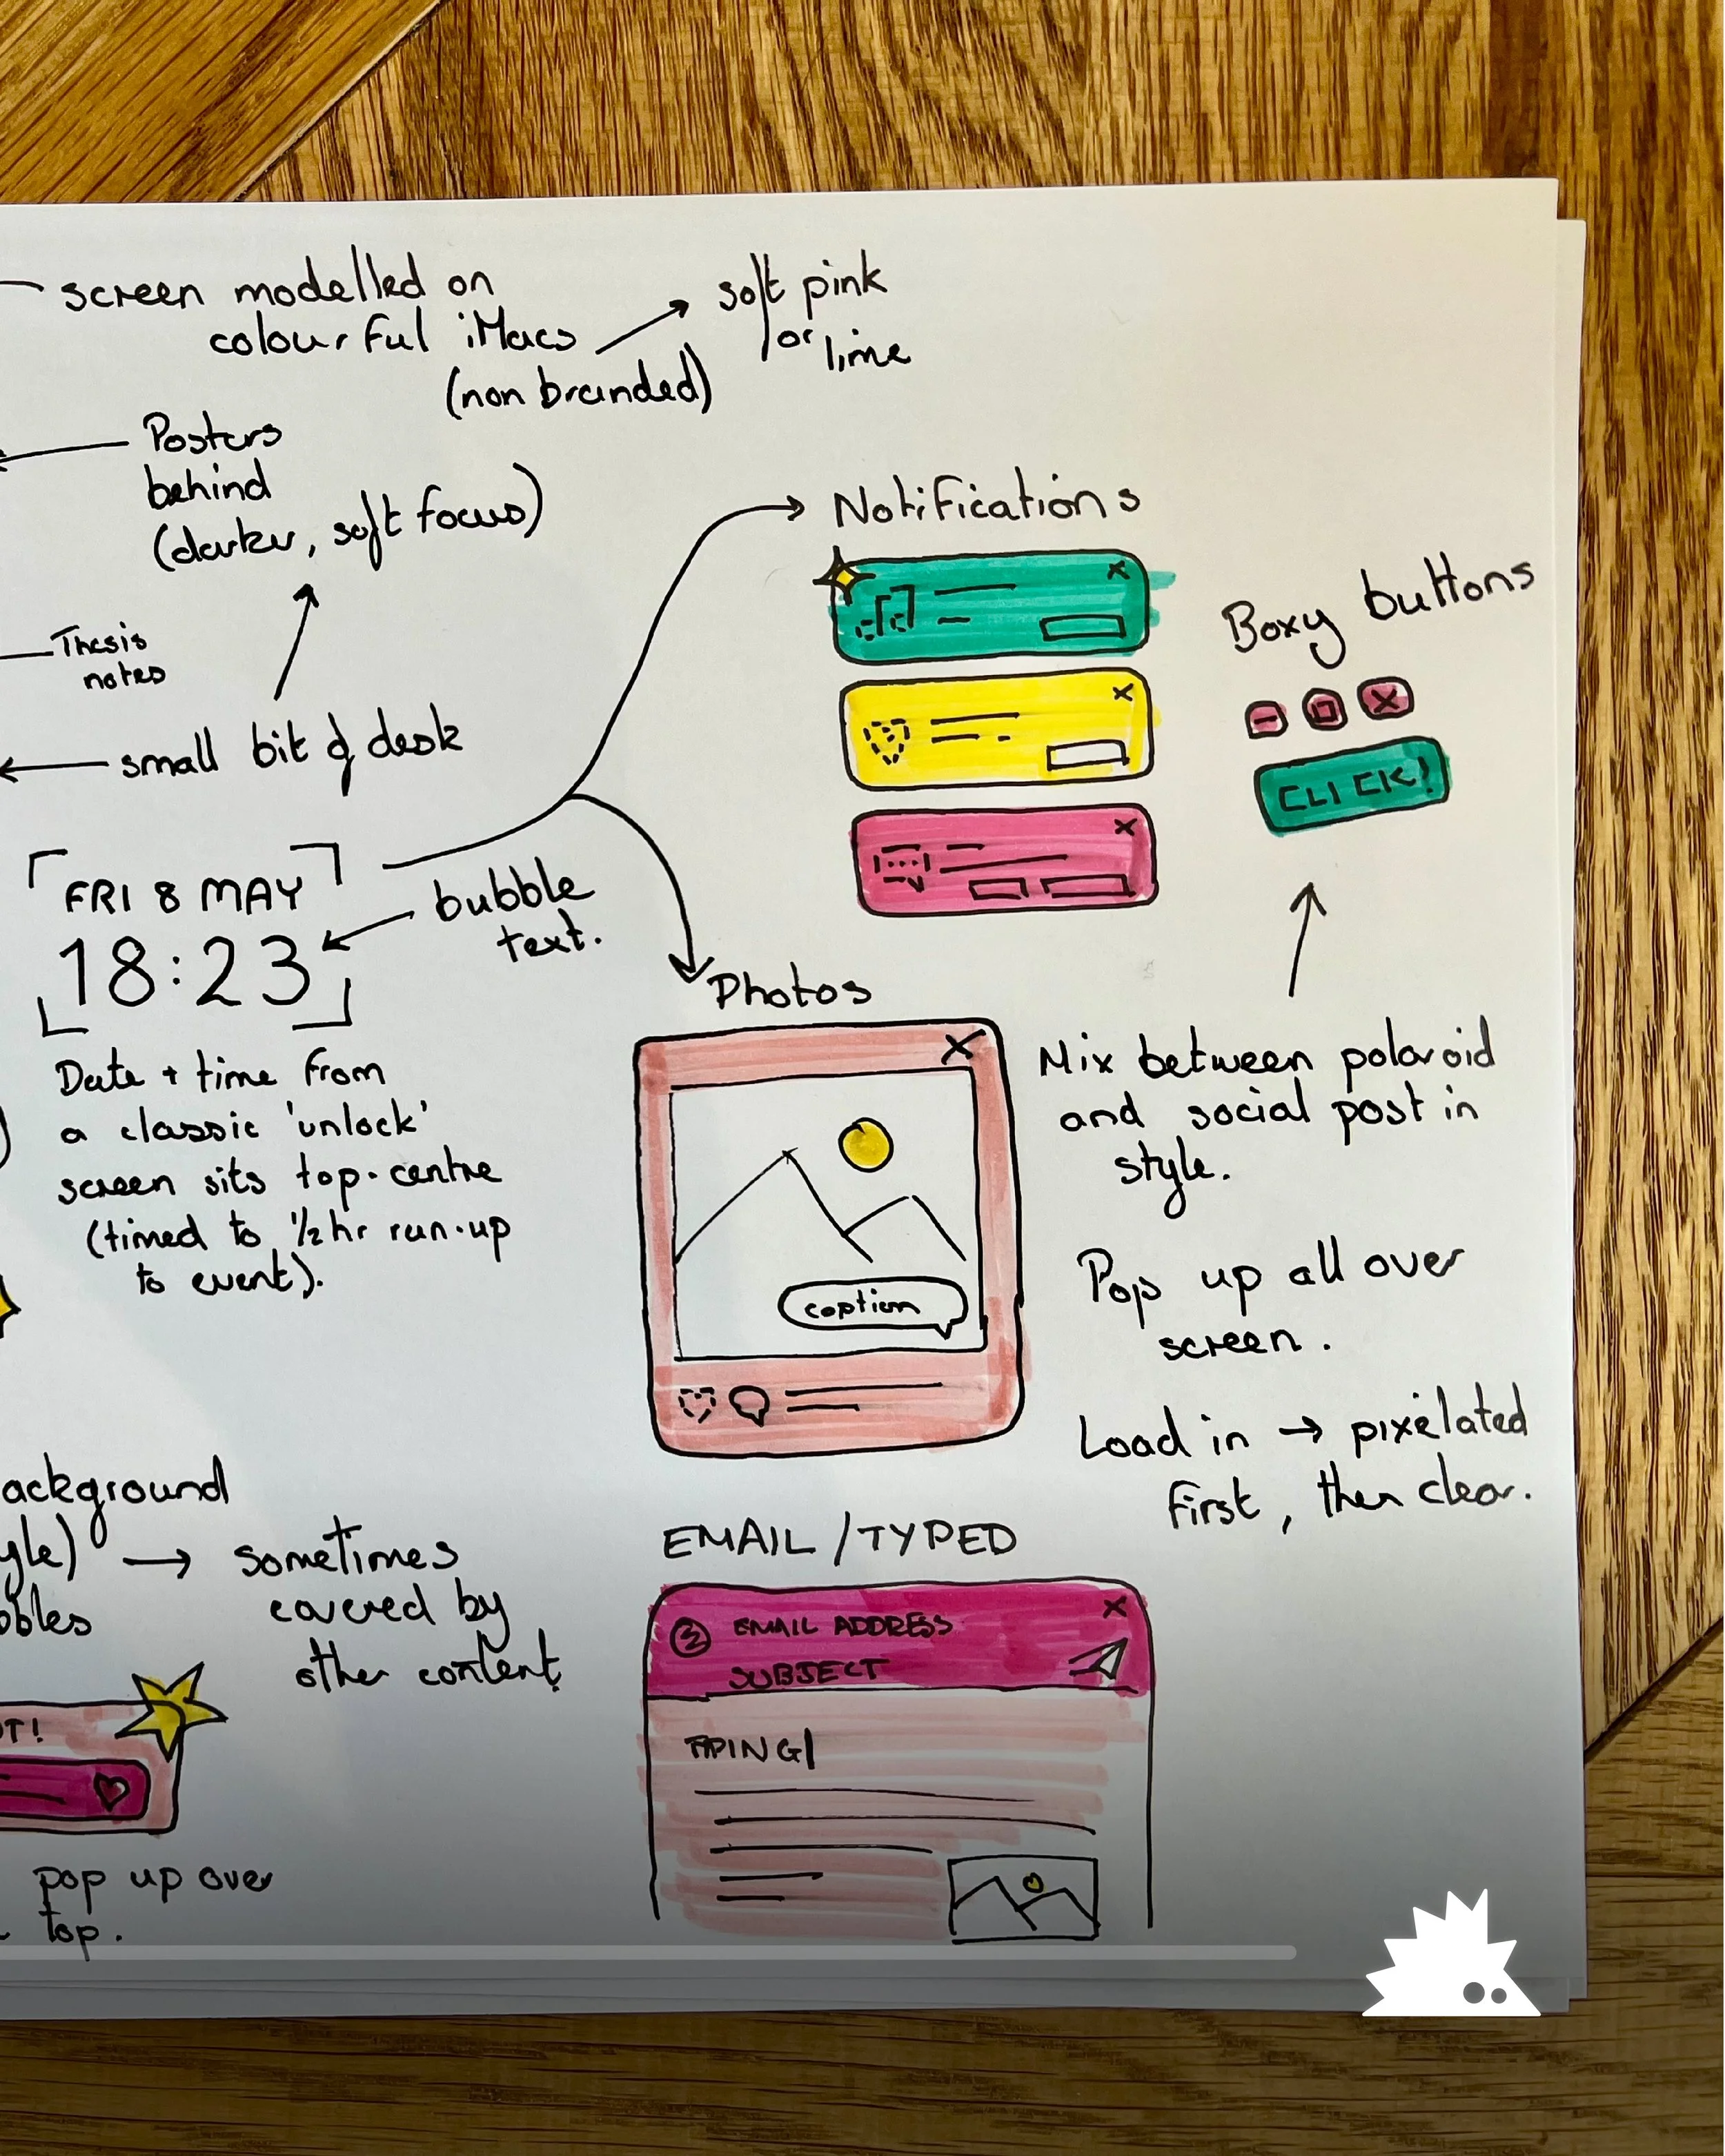 screen modelled on
colourful iMacs
(non branded)
soft pink
or
lime
Posters
behind
(darker, soft focus)
Thesis
notes
small bit of desk
FRI 8 MAY
18:23
bubble
text.
Date + time from
a classic 'unlock'
screen sits top-centre
(timed to 1/2 hr run-up
to event).
Notifications
Boxy buttons
CLICK!
Photos
caption
Mix between polaroid
and social post in
style.
Pop up all over
screen.
Load in → pixelated
first, then clear.
ackground
yle) → sometimes
covered by
other content
bbles
OT!
pop up over
top.
EMAIL/TYPED
EMAIL ADDRESS
SUBJECT
TYPING|